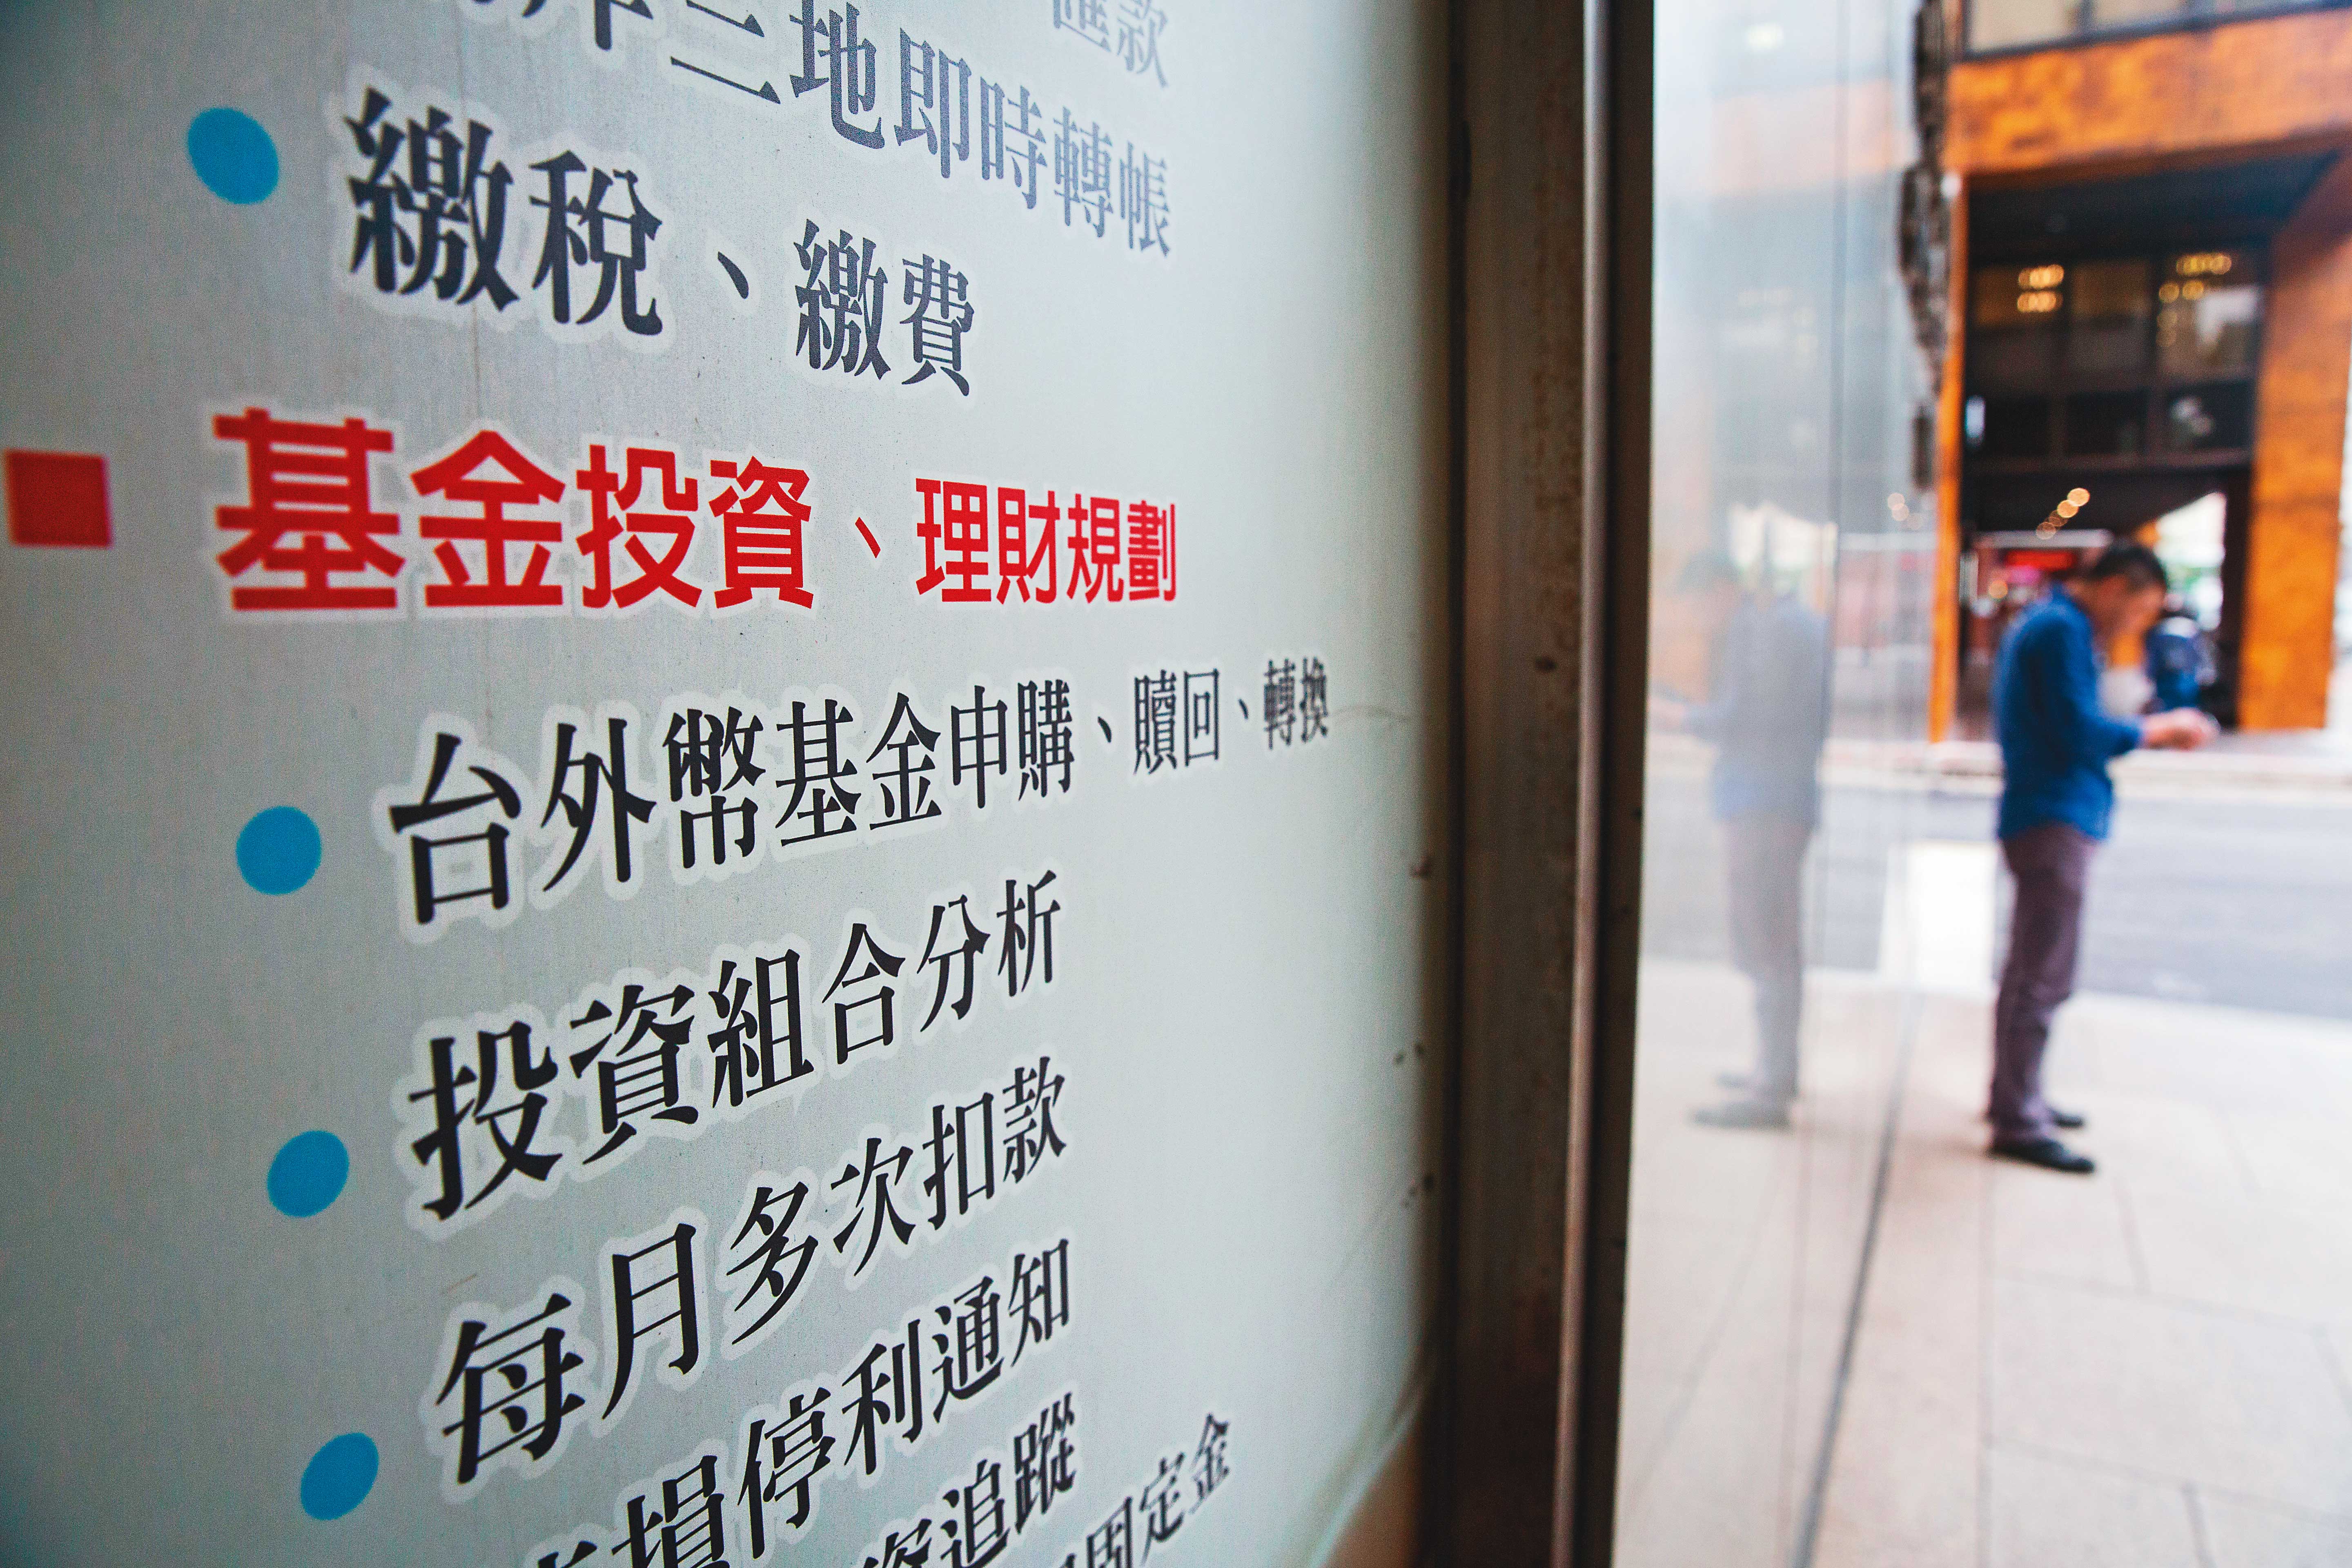 匯款
岸三地即時轉帳
繳稅、繳費
基金投資、理財規劃
台外幣基金申購、贖回、轉換
投資組合分析
每月多次扣款
損停利通知
資追蹤
固定金